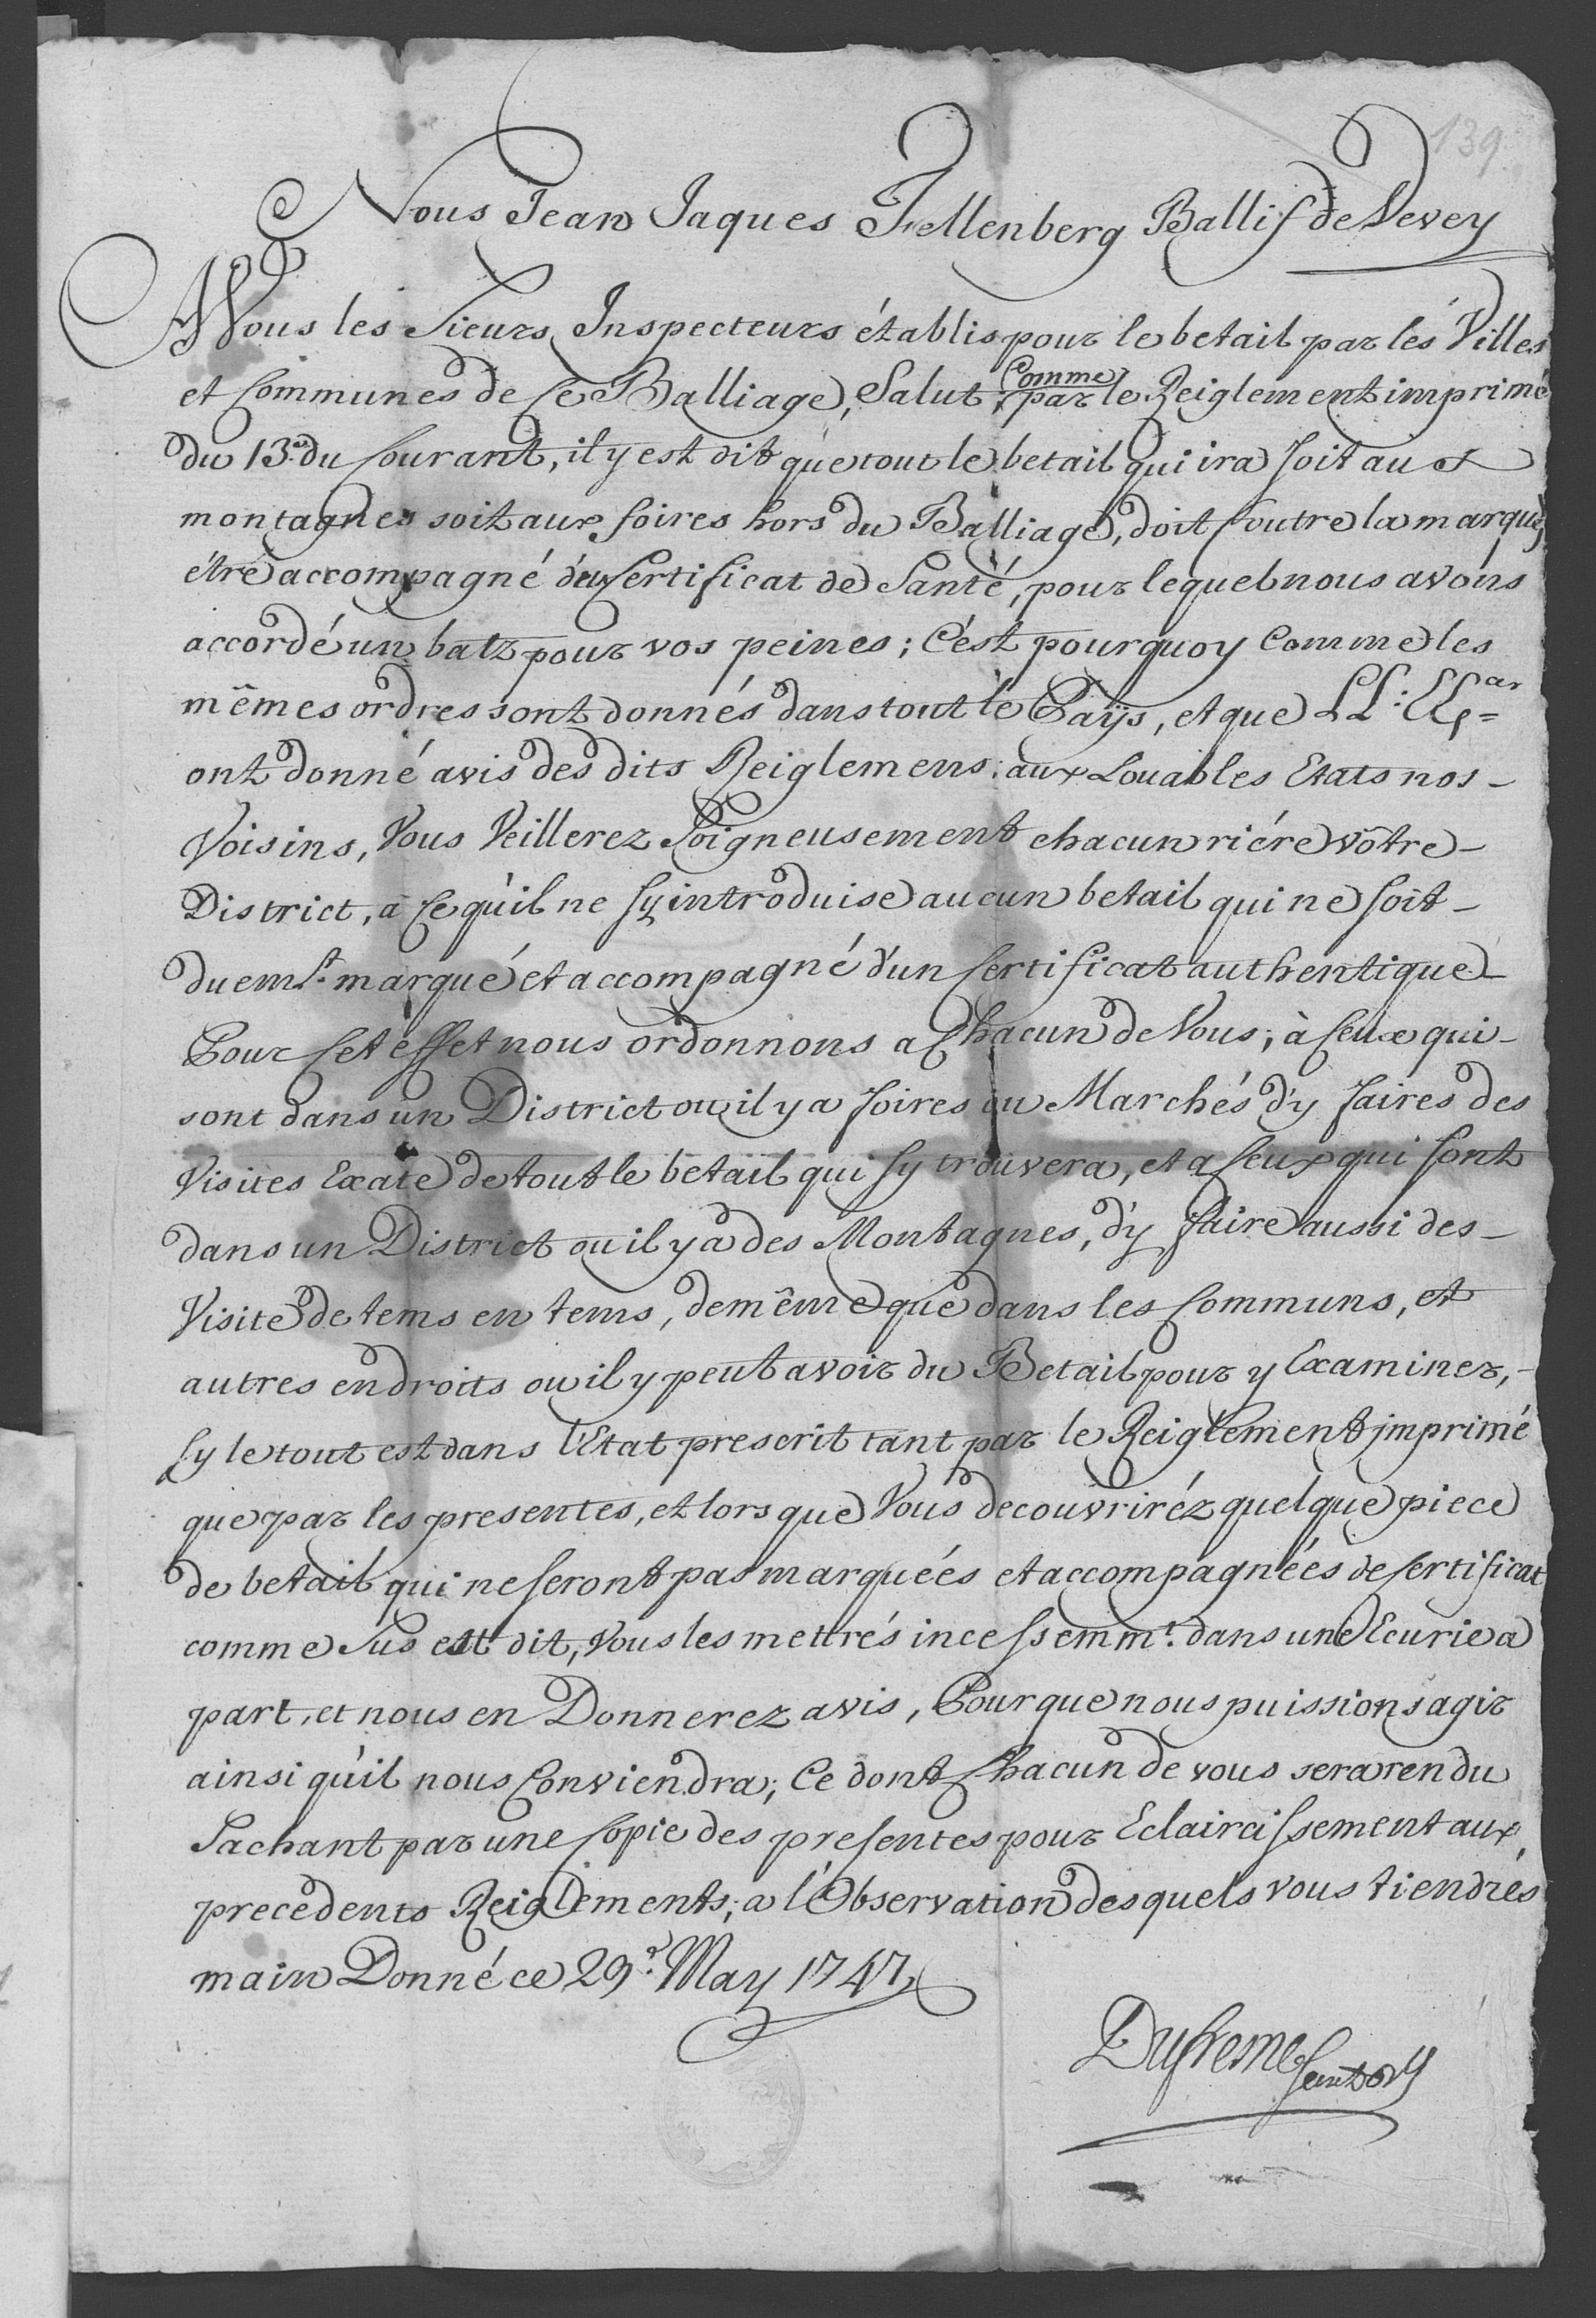 139
Nous Jean Jaques Fellenberg Ballif de Vevey
A Vous les Sieurs Inspecteurs établis pour le betail par les Villes
et Communes de Ce Balliage, Salut; Comme par le Reiglement imprimé
du 13.e du Courant, il y est dit que tout le betail qui ira soit aux
montagnes soit aux foires hors du Balliage, doit Coutre la marque,
être accompagné d'un Certificat de Santé, pour lequel nous avons
accordé un batz pour vos peines; C'est pourquoy Comme les
mêmes ordres sont donnés dans tout le Païs, et que LL: EE:
ont donné avis des dits Reiglemens aux Louables Etats nos
Voisins, Vous Veillerez Soigneusement chacun riére vôtre
District, à Ce qu'il ne s'y introduise aucun betail qui ne soit
duem.t marqué et accompagné d'un Certificat authentique
Pour Cet effet nous ordonnons a Chacun de Vous; à Ceux qui
sont dans un District ou il y a foires ou Marchés d'y faires des
Visites Exate de tout le betail qui s'y trouvera, et a Ceux qui sont
dans un District ou il y a des Montagnes, d'y faire aussi des
Visite de tems en tems, de même que dans les Communs, et
autres endroits ou il y peut avoir du Betail pour y Examiner,
sy le tout est dans l'Etat prescrit tant par le Reiglement jmprimé
que par les presentes, et lors que Vous decouvriréz quelque piece
de betail qui ne seront pas marquées et accompagnées de Certificat
comme Sus est dit, Vous les mettrés incessemm.t dans une Ecurie a
part, et nous en Donnerez avis, Pour que nous puissions agir
ainsi qu'il nous Conviendra; Ce dont Chacun de vous sera rendu
Sachant par une Copie des presentes pour Eclaircissement aux
precedents Reiglements; a l'Observation des quels vous tiendrés
main Donné ce 29.e May 1747
Dufresne